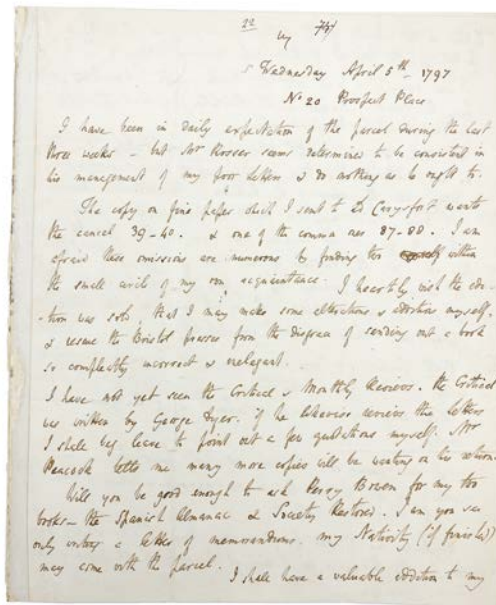 22
Wednesday April 5th - 1797
No 20 Prospect Place
I have been in daily expectation of the parcel during the last
three weeks - but Mr Rosser seems determined to be consistent in
his management of my poor Letters & do nothing as he ought to.
The copy on fine paper which I sent to Ld Carysfort wants
the cancel 39-40. & one of the common ones 87-88. I am
afraid these omissions are numerous by finding two within
the small circle of my own acquaintance. I heartily wish the edi-
-tion was sold that I may make some alterations & additions myself,
& rescue the Bristol presses from the disgrace of sending out a book
so compleatly incorrect & inelegant.
I have not yet seen the Critical & Monthly Reviews. the Critical
was written by George Dyer. if he likewise reviews the Letters
I shall beg leave to point out a few quotations myself. Mr
Peacock tells me many more copies will be wanting on his return.
Will you be good enough to ask Perry Brown for my two
books - the Spanish Almanac & Society Restored. I am you see
only writing a letter of memorandums. my Nativity (if finished)
may come with the parcel.
I shall have a valuable addition to my